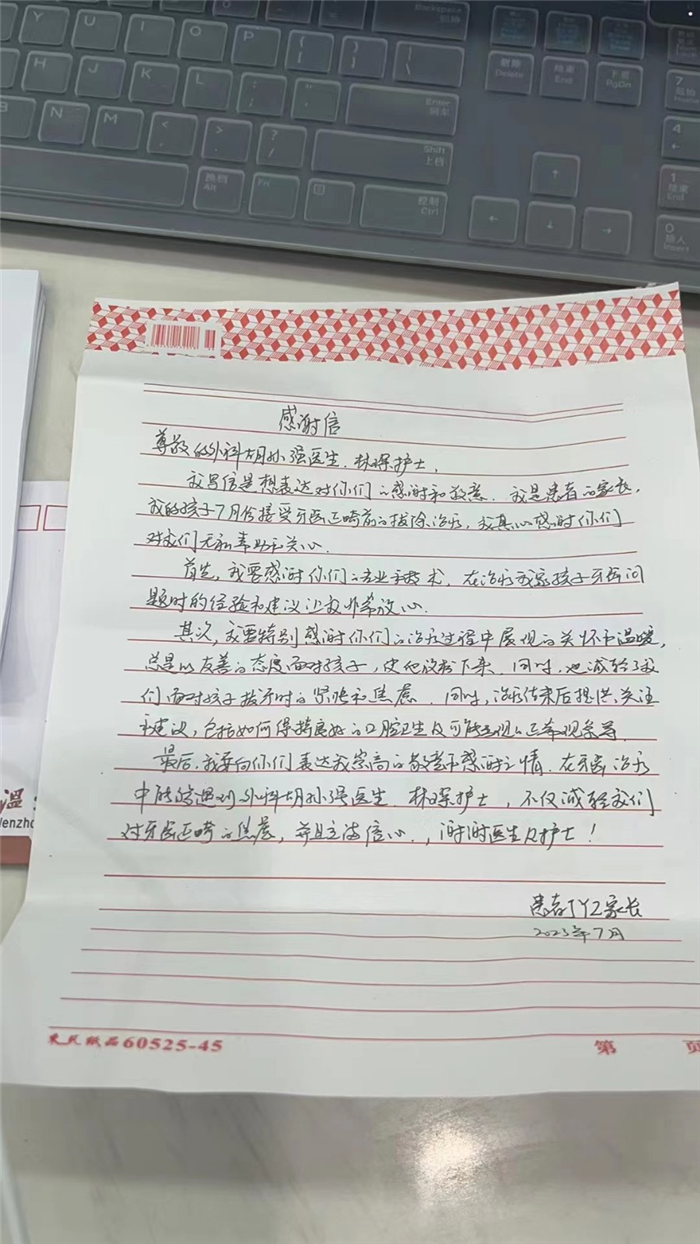 Backspace
{ [
} ]
| \
删除 Delete
结束 End
下页 PgDn
7
H J K L
Enter 回车
4
B N M
Shift 上档
换档 Alt
Fn
控制 Ctrl
1 结束 End
0 插入 Insert
感谢信
尊敬的外科胡孙强医生、林晖护士,
我写信是想表达对你们的感谢和敬意. 我是患者的家长,
我的孩子7月份接受牙齿正畸前的拔除治疗, 我真心感谢你们
对我们无私帮助和关心.
首先, 我要感谢你们的专业和技术. 在治疗我家孩子牙齿问
题时的经验和建议让我非常放心.
其次, 我要特别感谢你们的治疗过程中展现的关怀和温暖,
总是以友善的态度面对孩子, 使他放松下来. 同时, 也减轻了我
们面对孩子拔牙时的紧张和焦虑. 同时, 治疗结束后提供关注
和建议, 包括如何保持良好的口腔卫生及可能出现的正常现象等.
最后, 我要向你们表达我崇高的敬意和感谢之情. 在牙齿治疗
中能够遇到外科胡孙强医生、林晖护士, 不仅减轻我们
对牙齿正畸的焦虑, 并且充满信心., 谢谢医生及护士!
患者TYZ家长
2023年7月
60525-45
第 页
温
Wenzho